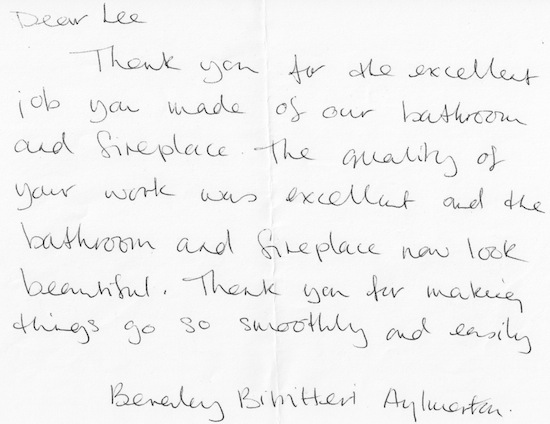 Dear Lee
Thank you for the excellent
job you made of our bathroom
and fireplace. The quality of
your work was excellent and the
bathroom and fireplace now look
beautiful. Thank you for making
things go so smoothly and easily
Beverley Aylmerton.